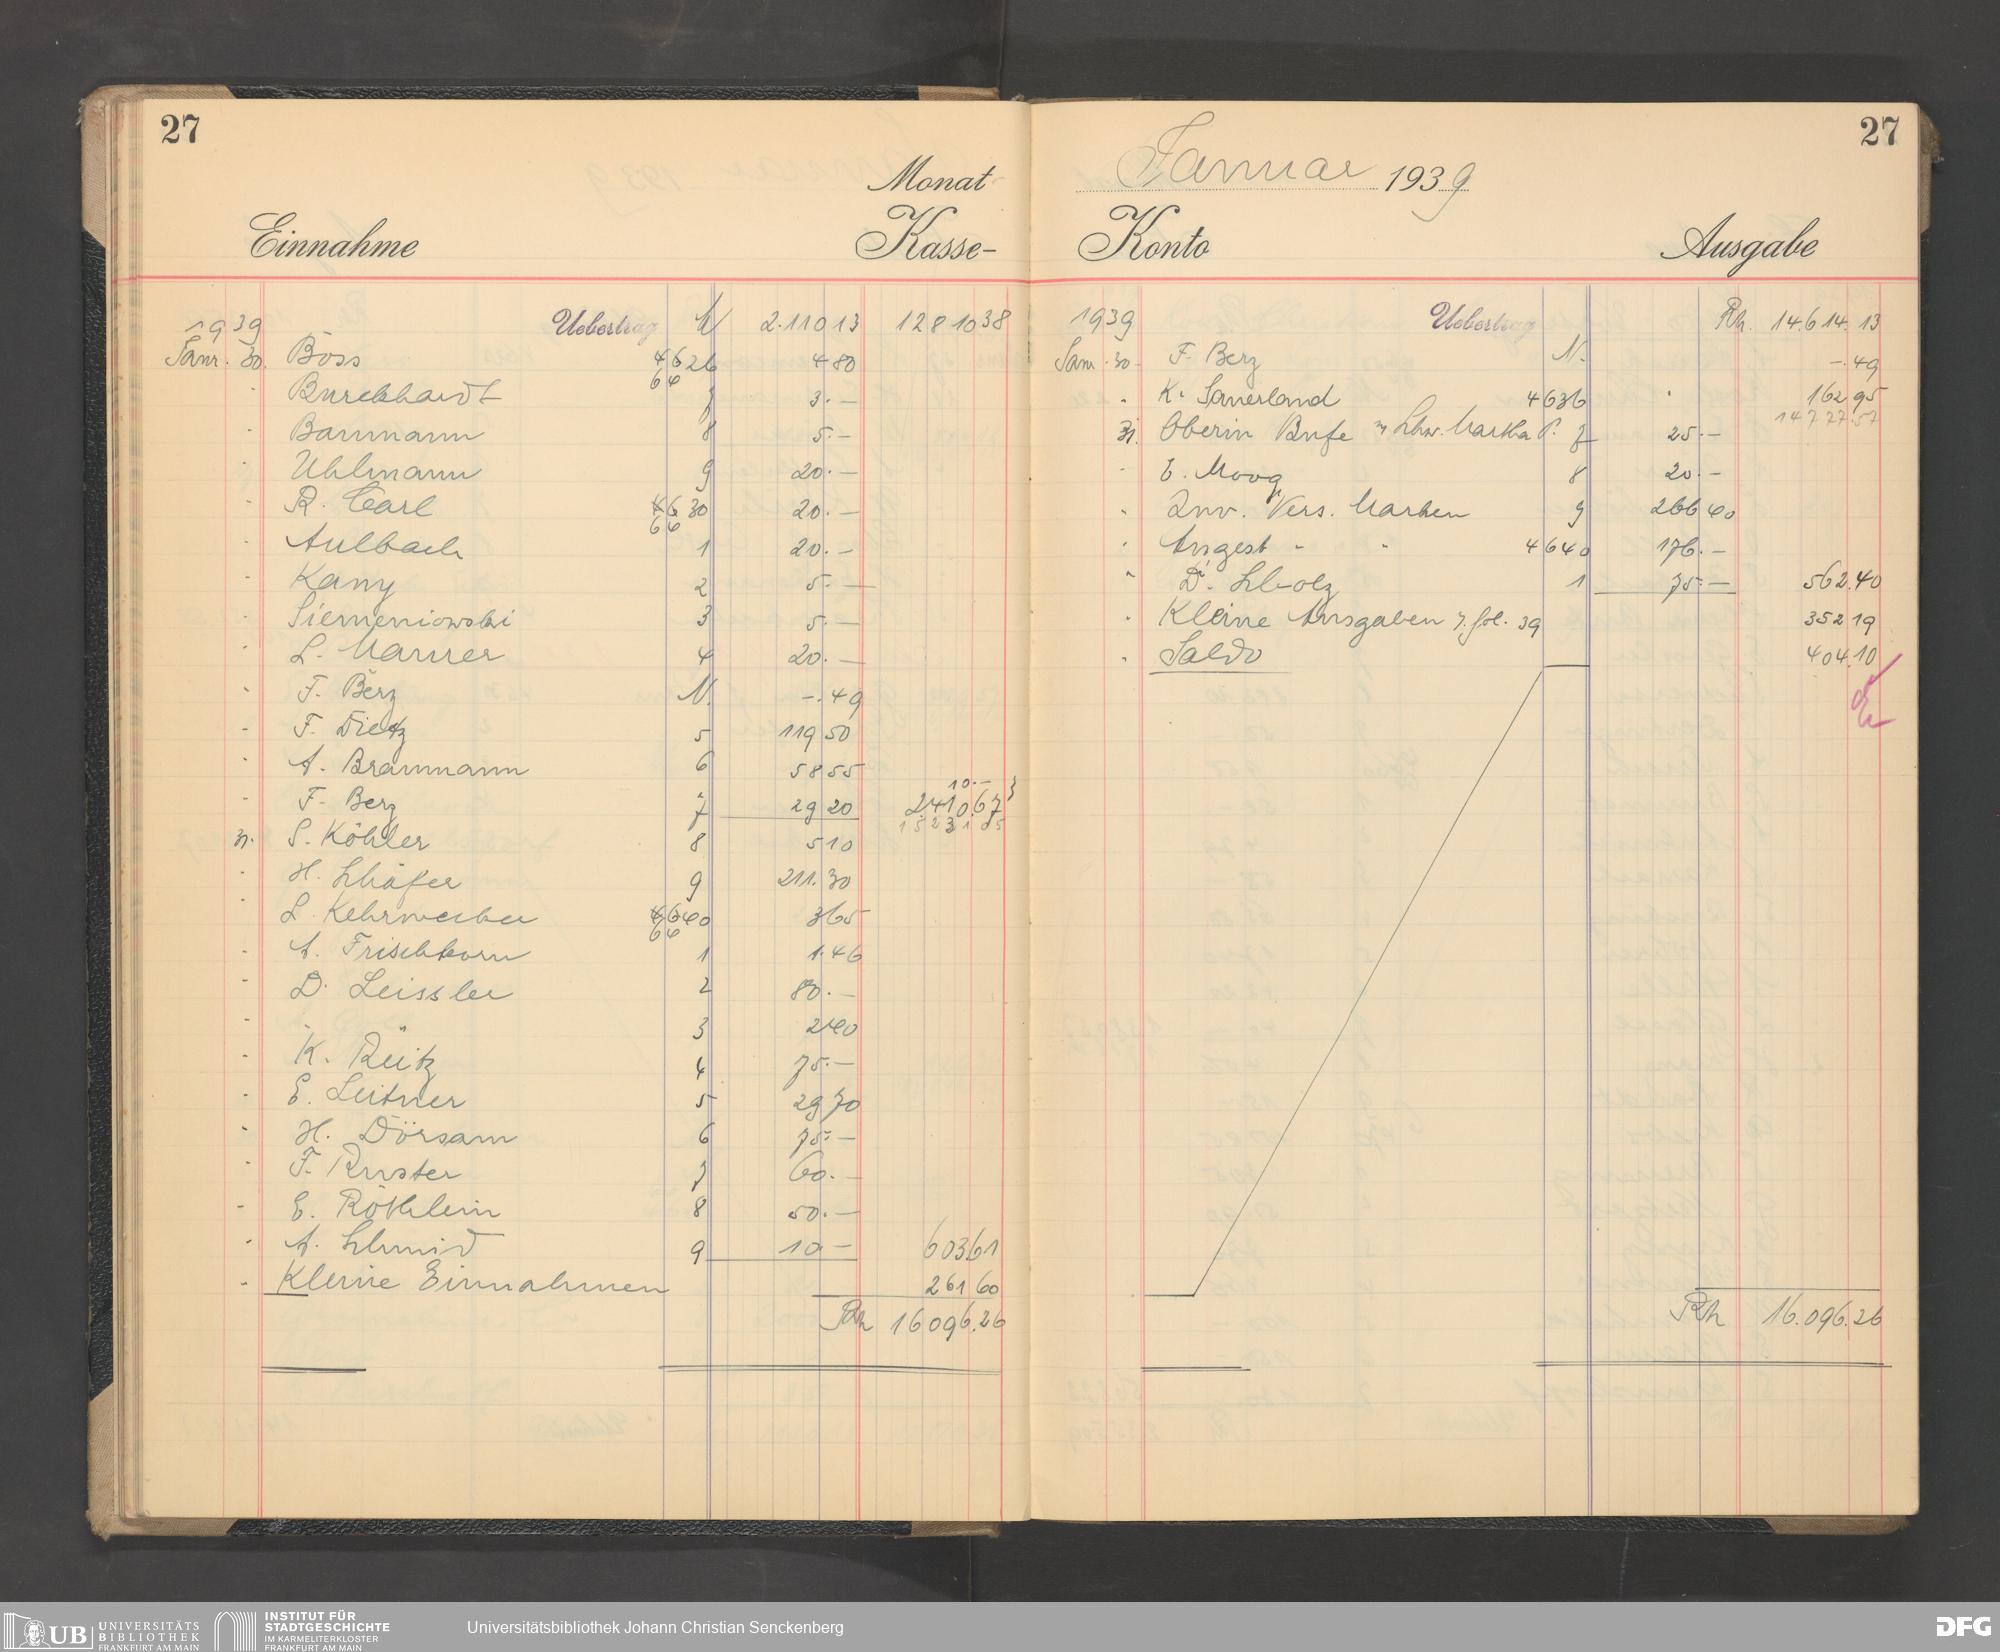 27
Monat
Einnahme Kasse-
1939 Uebertrag 2.110 13 12810 38
Janr. 30. Böss 4626 4 80
64
" Burckhardt 7 3.—
" Baumann 8 5.—
" Uhlmann 9 20.—
" R. Carl 4630 20.—
64
" Aulbach 1 20.—
" Kany 2 5.—
" Siemeniowski 3 5.—
" L. Maurer 4 20.—
" F. Berz N. —.49
" F. Dietz 5 119 50
" A. Braumann 6 58 55
10.—
" F. Berz 7 29 20 2410.67
15231 05
31. S. Köhler 8 5 10
" H. Schäfer 9 211.30
" L. Kehrwecker 4640 3 65
64
" A. Frischkorn 1 1.46
" D. Leissler 2 80.—
" " 3 2 40
" K. Reitz 4 75.—
" E. Leitner 5 29 70
" H. Dörsam 6 75.—
" F. Ruster 7 60.—
" E. Röthlein 8 50.—
" A. Schmid 9 10 — 603.61
" Kleine Einnahmen 261 60
Rh 16096.26
27
Januar 1939
Konto Ausgabe
1939 Uebertrag Rh. 14.614.13
Jan. 30. F. Berz N. —.49
" K. Sauerland 4636 " 162 95
14777.57
31. Oberin Bufe Schw. Martha P. 7 25.—
" E. Moog 8 20.—
" Inv. Vers. Marken 9 266 40
" Angest " " 4640 176.—
" Dr. Scholz 1 75.— 562.40
" Kleine Ausgaben fol. 39 352 19
" Saldo 404.10
Rh 16.096.26
UB UNIVERSITÄTS
BIBLIOTHEK
FRANKFURT AM MAIN
INSTITUT FÜR
STADTGESCHICHTE
IM KARMELITERKLOSTER
FRANKFURT AM MAIN
Universitätsbibliothek Johann Christian Senckenberg
DFG